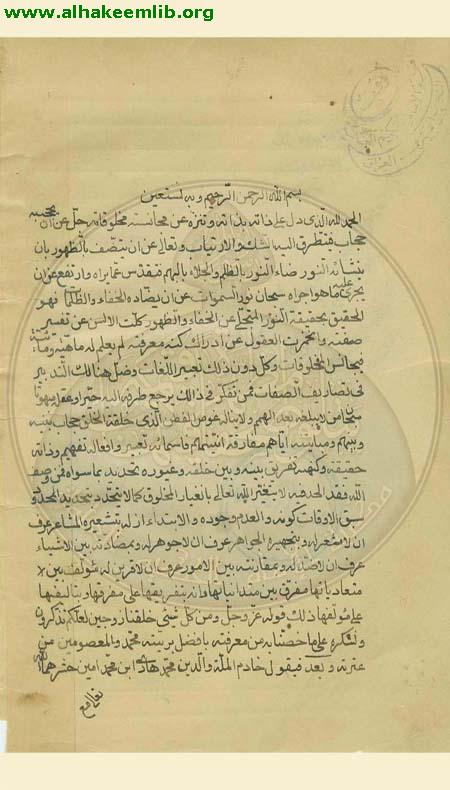 www.alhakeemlib.org
بسم الله الرحمن الرحيم وبه نستعين
الحمد لله الذى دل على ذاته بذاته وتنزه عن مجانسة مخلوقاته جل عن ان يحجبه
حجاب فيتطرق اليه الشك والارتياب وتعالى عن ان يتصف بالظهور بان
النور ضاء النور بالظلم والجلاء بالبهم تقدس عما يراه وارتفع عن ان
يجرى عليه ما هو اجراه سبحان نور السموات عن ان يضاده الخفاء والظلماء فهو
الحقيق بحقيقة النور المتجلى عن الخفاء والظهور كلت الالسن عن تفسير
صفته وانحسرت العقول عن ادراك كنه معرفته لم يعلم له ماهية وماشيته
فيجانس المخلوقات وكل دون ذلك تعبير اللغات وضل هنالك التدبير
فى تصاريف الصفات فمن تفكر فى ذلك يرجع طرفه اليه حسيرا وعقله مبهوتا
سبحان من لا يبلغه بعد الهمم ولا يناله غوص الفطن الذى خلقة الخلق حجاب بينه
وبينهم ومباينته اياهم مفارقة اينيتهم فاسمائه تعبير وافعاله تفهيم وذاته
حقيقة وكنهه تفريق بينه وبين خلقه وغيوره تحديد لما سواه فمن وصف
الله فقد الحد فيه لا يتغير الله تعالى بانغيار المخلوق كما لا يتحدد بتحديد المحدود
سبق الاوقات كونه والعدم وجوده والابتداء ازله بتشعيره المشاعر عرف
ان لا مشعر له وبتجهيره الجواهر عرف ان لا جوهر له وبمضادته بين الاشياء
عرف ان لا ضد له وبمقارنته بين الامور عرف ان لا قرين له مؤلف بين
متعادياتها مفرق بين متدانياتها دالة بتفريقها على مفرقها وبتاليفها
على مؤلفها ذلك قوله عز وجل ومن كل شئ خلقنا زوجين لعلكم تذكرون
ونشكره على ما خصنا به من معرفته بافضل بريته محمد والمعصومين من
عترته وبعد فيقول خادم الملة والدين محمد هادى ابن محمد امين حشرهما الله
تعالى مع